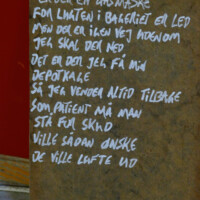 FOR LUGTEN I BAGERIET ER LED
MEN DER ER IGEN VEJ UDENOM
JEG SKAL DER NED
DET ER DER JEG FÅ MIN
DEPOTKAGE
SÅ JEG VENDER ALTID TILBAGE
SOM PATIENT MÅ MAN
STÅ FUR SKUD
VILLE SÅDAN ØNSKE
DE VILLE LUFTE UD